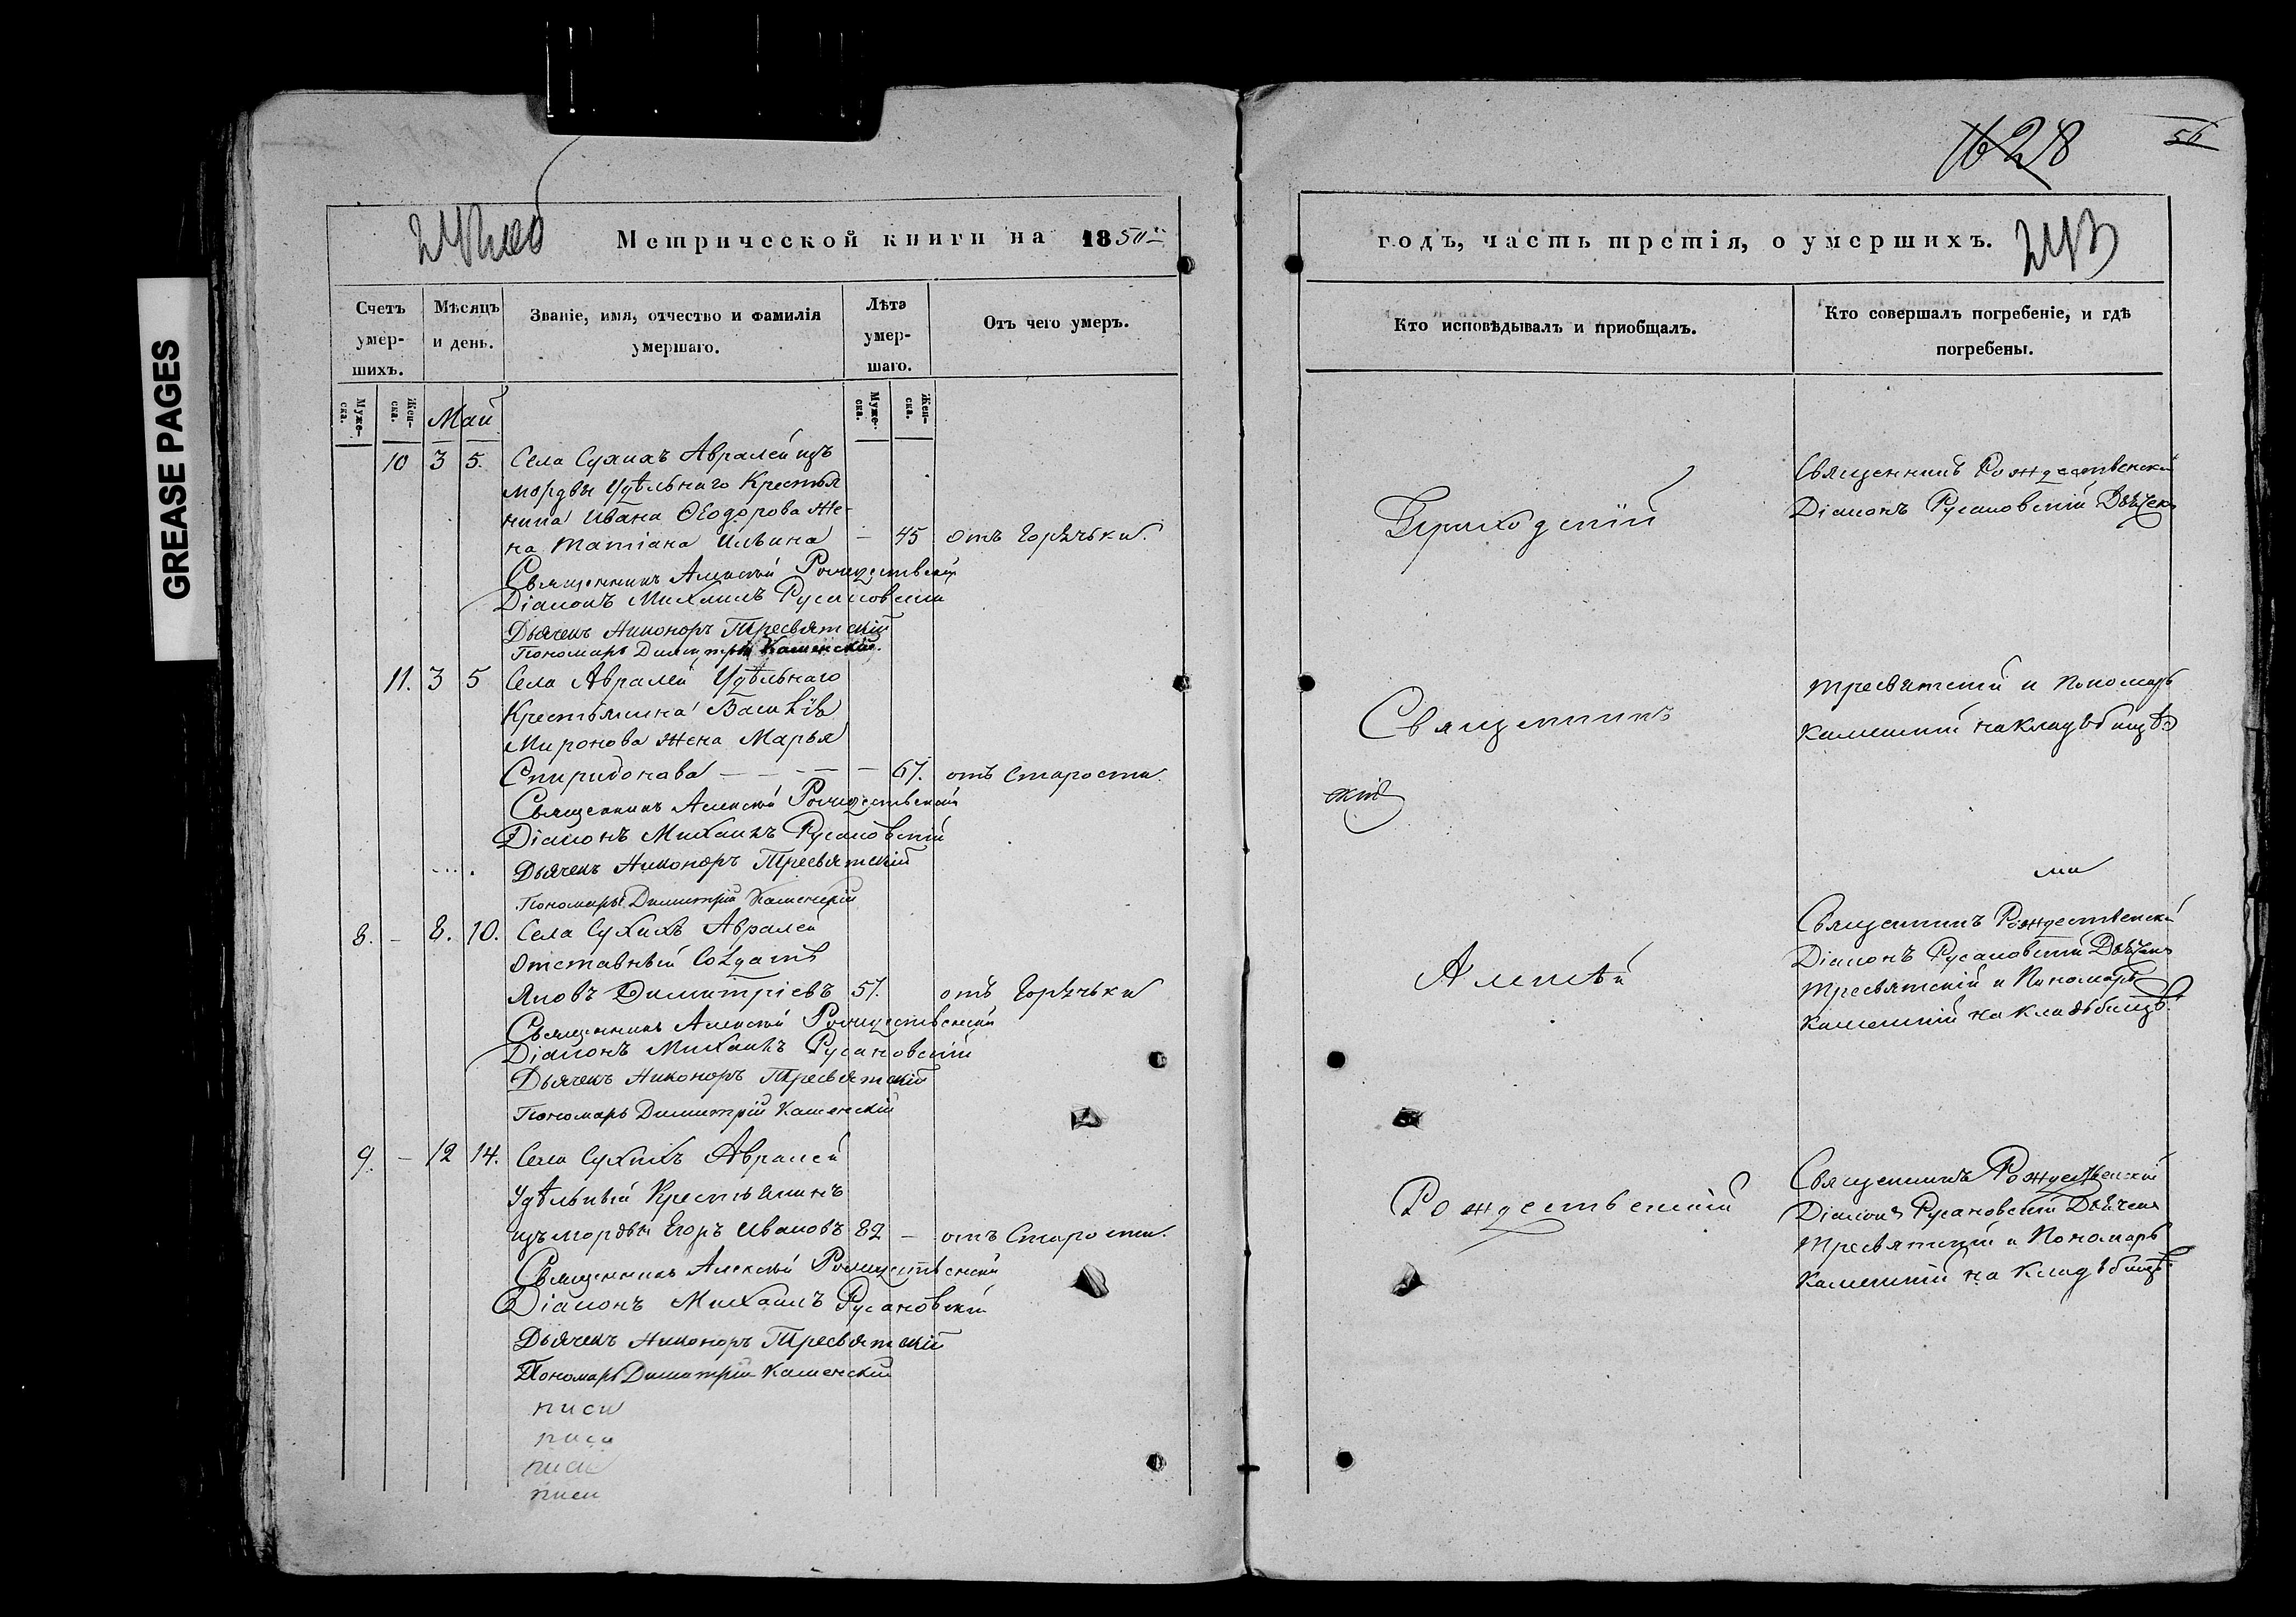 GREASE PAGES
Метрической книги на 1850й
Счетъ умер-шихъ.
Мѣсяцъ и день.
Званіе, имя, отчество и фамилія умершаго.
Лѣта умер-шаго.
Отъ чего умеръ.
Муже-ска.
Жен-ска.
Май
Муже-ска.
Жен-ска.
10 3 5. Села Сухихъ Авралей изъ
мордвы Удѣльнаго Крестья
нина Ивана Ѳеодорова Же-
на Татіана Ильина – 45 отъ Горячьки.
Священникъ Алексѣй Рождественскій
Діаконъ Михаилъ Русановскій
Дьячекъ Никоноръ Тресвятскій
Пономарь Димитрій Каменскій.
11. 3 5 Села Авралей Удѣльнаго
Крестьянина
Миронова жена Марья
Спиридонова – – – – – 67. отъ Старости.
Священникъ Алексѣй Рождественскій
Діаконъ Михаилъ Русановскій
Дьячекъ Никоноръ Тресвятскій
Пономарь Димитрій Каменскій
8. – 8. 10. Села Сухихъ Авралей
Отставный Солдатъ
Яковъ Димитріевъ 57. отъ Горячьки
Священникъ Алексѣй Рождественскій
Діаконъ Михаилъ Русановскій
Дьячекъ Никоноръ Тресвятскій
Пономарь Димитрій Каменскій
9. – 12 14. Села Сухихъ Авралей
Удѣльный Крестьянинъ
изъ мордвы Егоръ Ивановъ 82 – отъ Старости.
Священникъ Алексѣй Рождественскій
Діаконъ Михаилъ Русановскій
Дьячекъ Никоноръ Тресвятскій
Пономарь Димитрій Каменскій
писи
писи
писи
писи
28
56
годъ, часть третія, о умершихъ.
243
Кто исповѣдывалъ и приобщалъ.
Кто совершалъ погребеніе, и гдѣ погребены.
Приходскій
Священникъ Рождественскій
Діаконъ Русановскій Дьячекъ
Священникъ
Тресвятскій и Пономарь
Каменскій на кладьбищѣ
Алексѣй
Священникъ Рождественскій
Діаконъ Русановскій Дьячекъ
Тресвятскій и Пономарь
Каменскій на кладьбищѣ.
Рождественскій
Священникъ Рождественскій
Діаконъ Русановскій Дьячекъ
Тресвятскій и Пономарь
Каменскій на кладьбищѣ